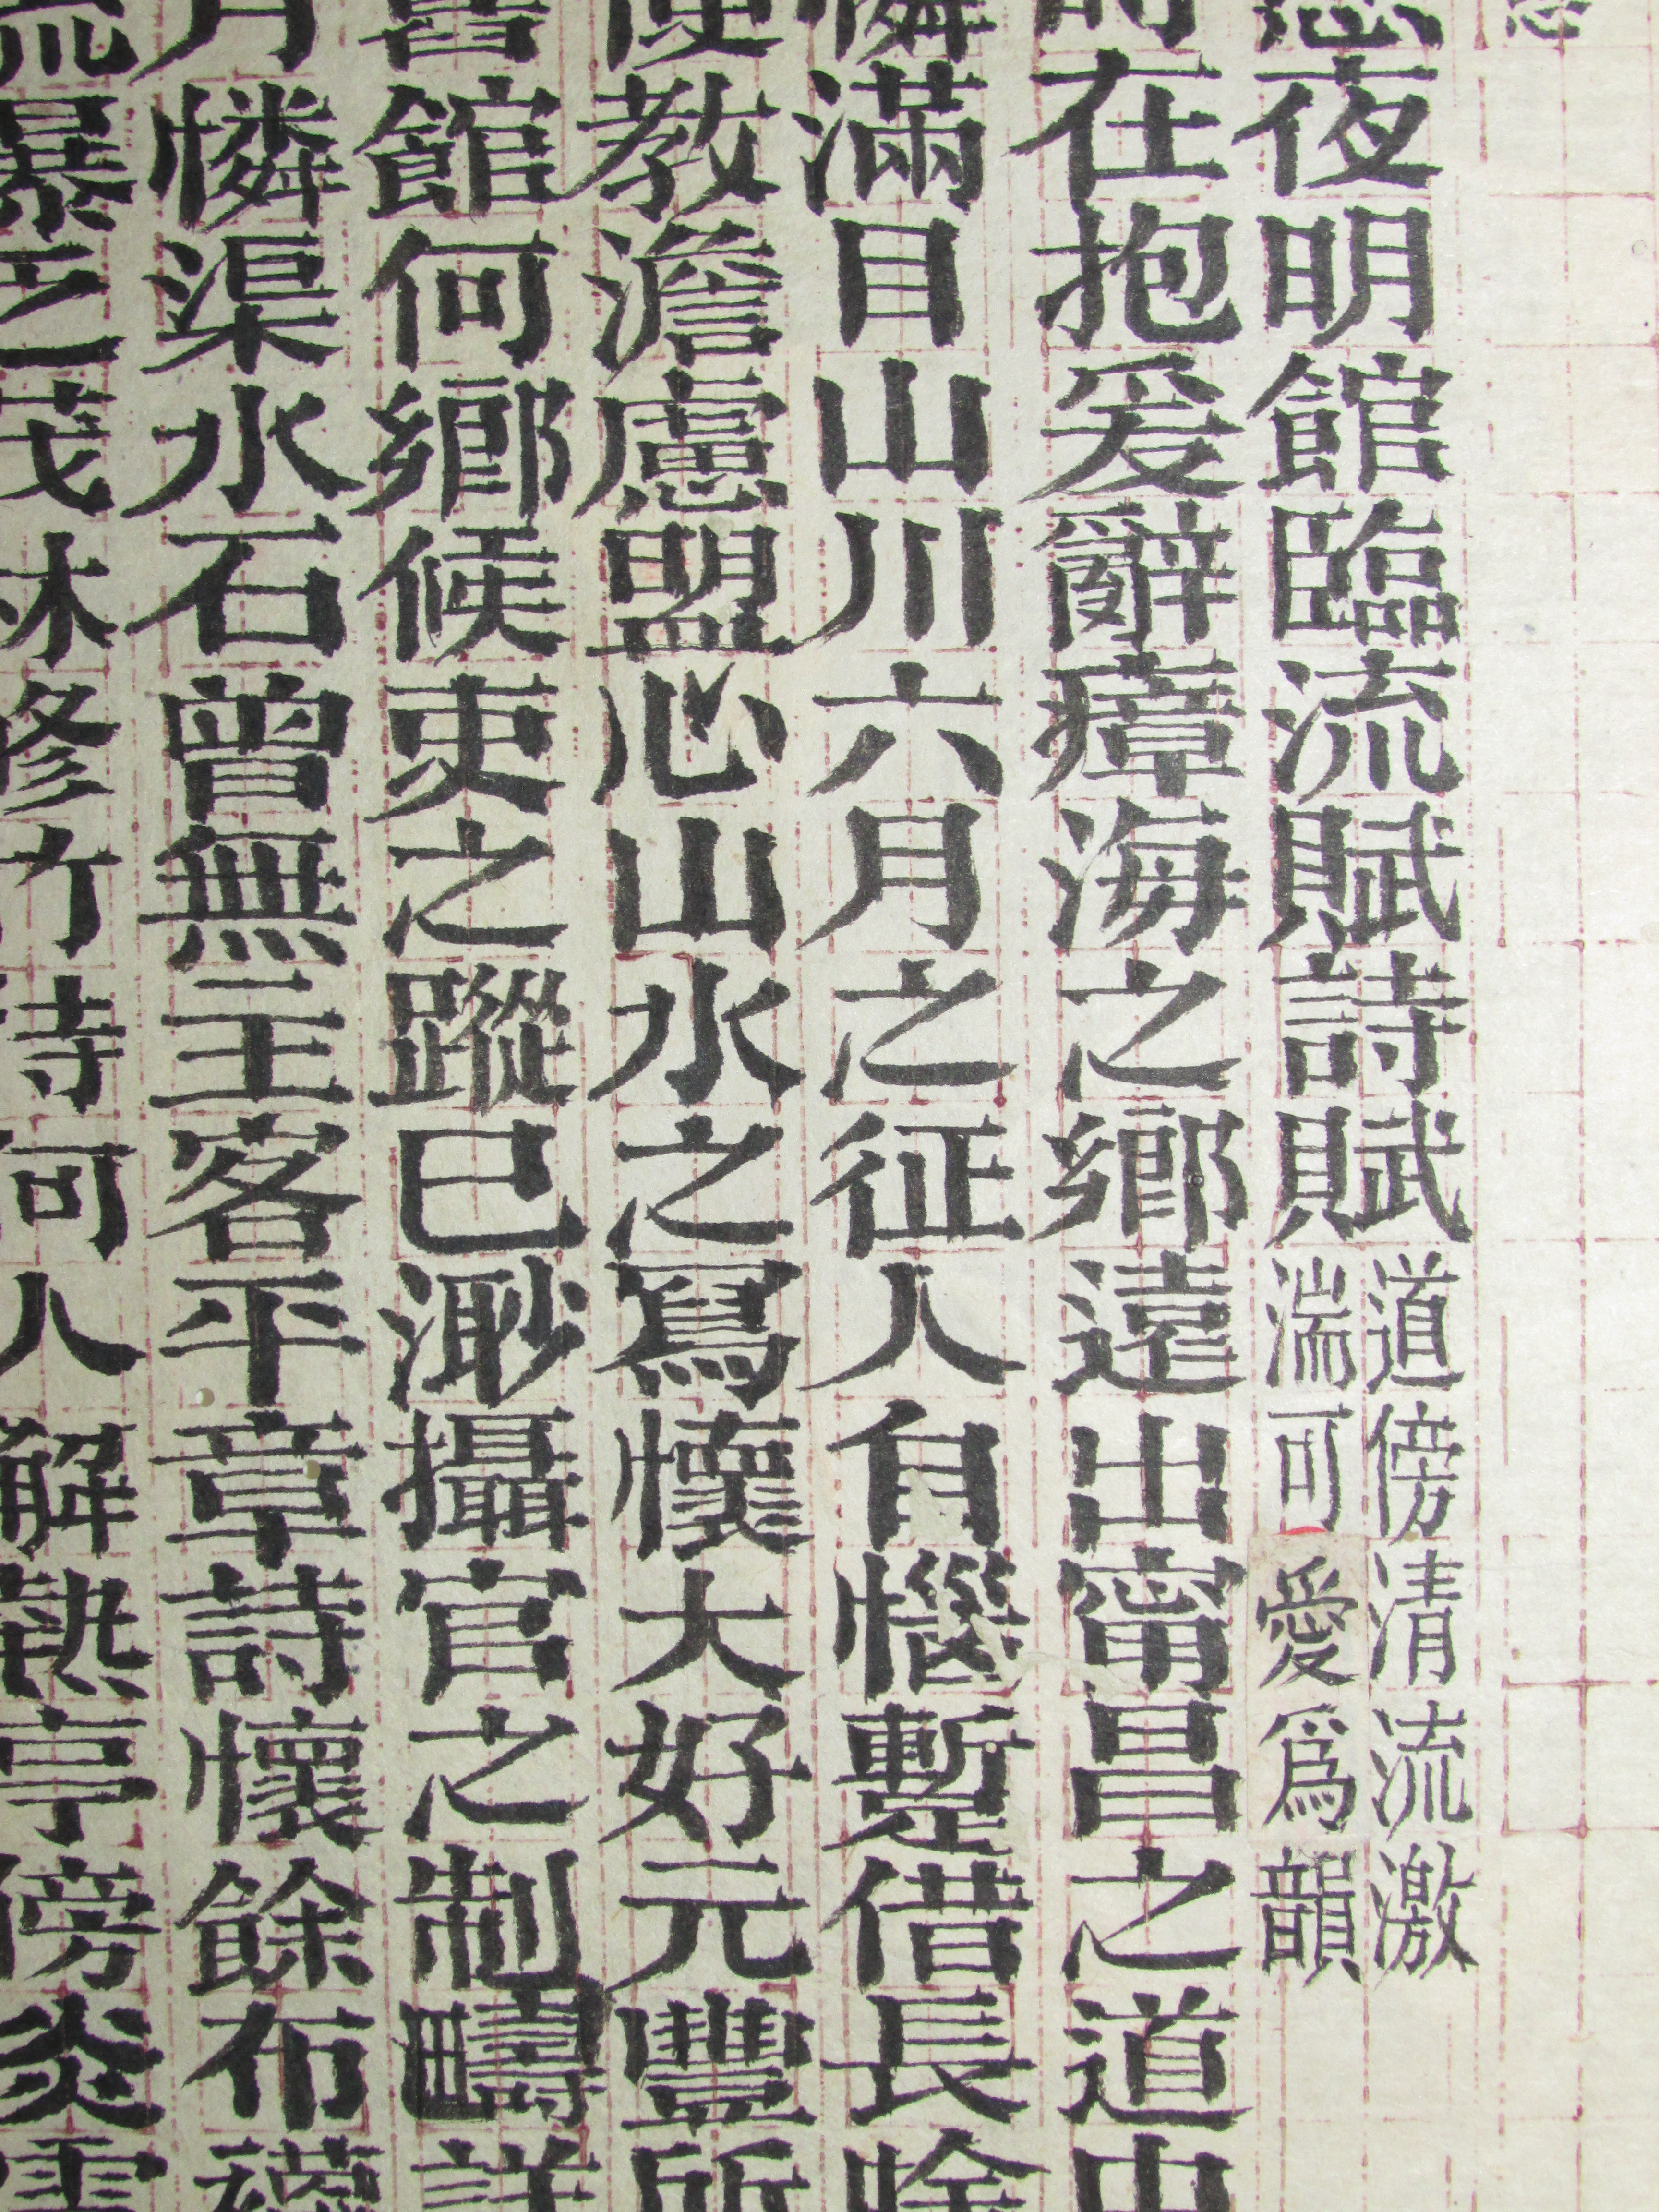 夜明館臨流賦詩賦道傍清流激湍可愛爲韻
在抱爰辭瘴海之鄉遠出甯昌之道
憐滿目山川六月之征人自惱蹔借長
使教澹慮盟心山水之寫懷大好元豐所
舊館何鄉候吏之蹤已渺攝官之制疇詳
月憐渠水石曾無主客平章詩懷餘布
流暴之茂林修竹待何人解熱亭傍炎雲